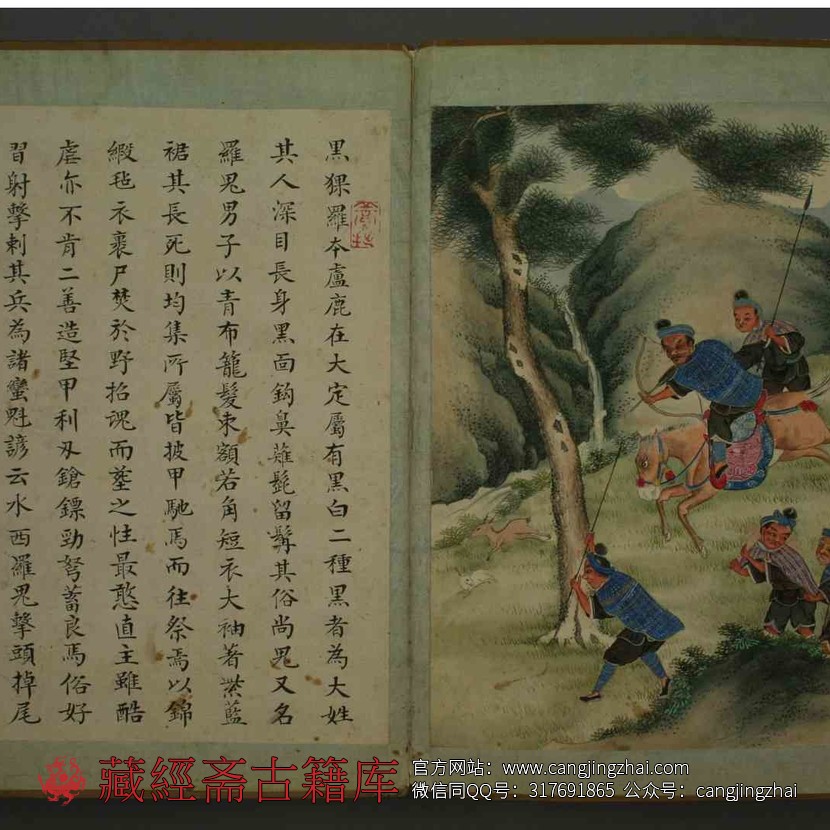 黒猓羅本盧鹿在大定屬有黒白二種黒者為大姓
其人深目長身黒面鈎鼻薙髭留髯其俗尚鬼又名
羅鬼男子以青布籠髮束額若角短衣大袖著紫藍
裙其長死則均集所屬皆披甲馳馬而往祭焉以錦
緞毡衣裹尸焚於野招魂而塟之性最憨直主雖酷
虐亦不肯二善造堅甲利刃鎗鏢勁弩蓄良馬俗好
習射擊刺其兵為諸蠻魁諺云水西羅鬼擊頭掉尾
藏經斋古籍库
官方网站：www.cangjingzhai.com
微信同QQ号：317691865 公众号：cangjingzhai